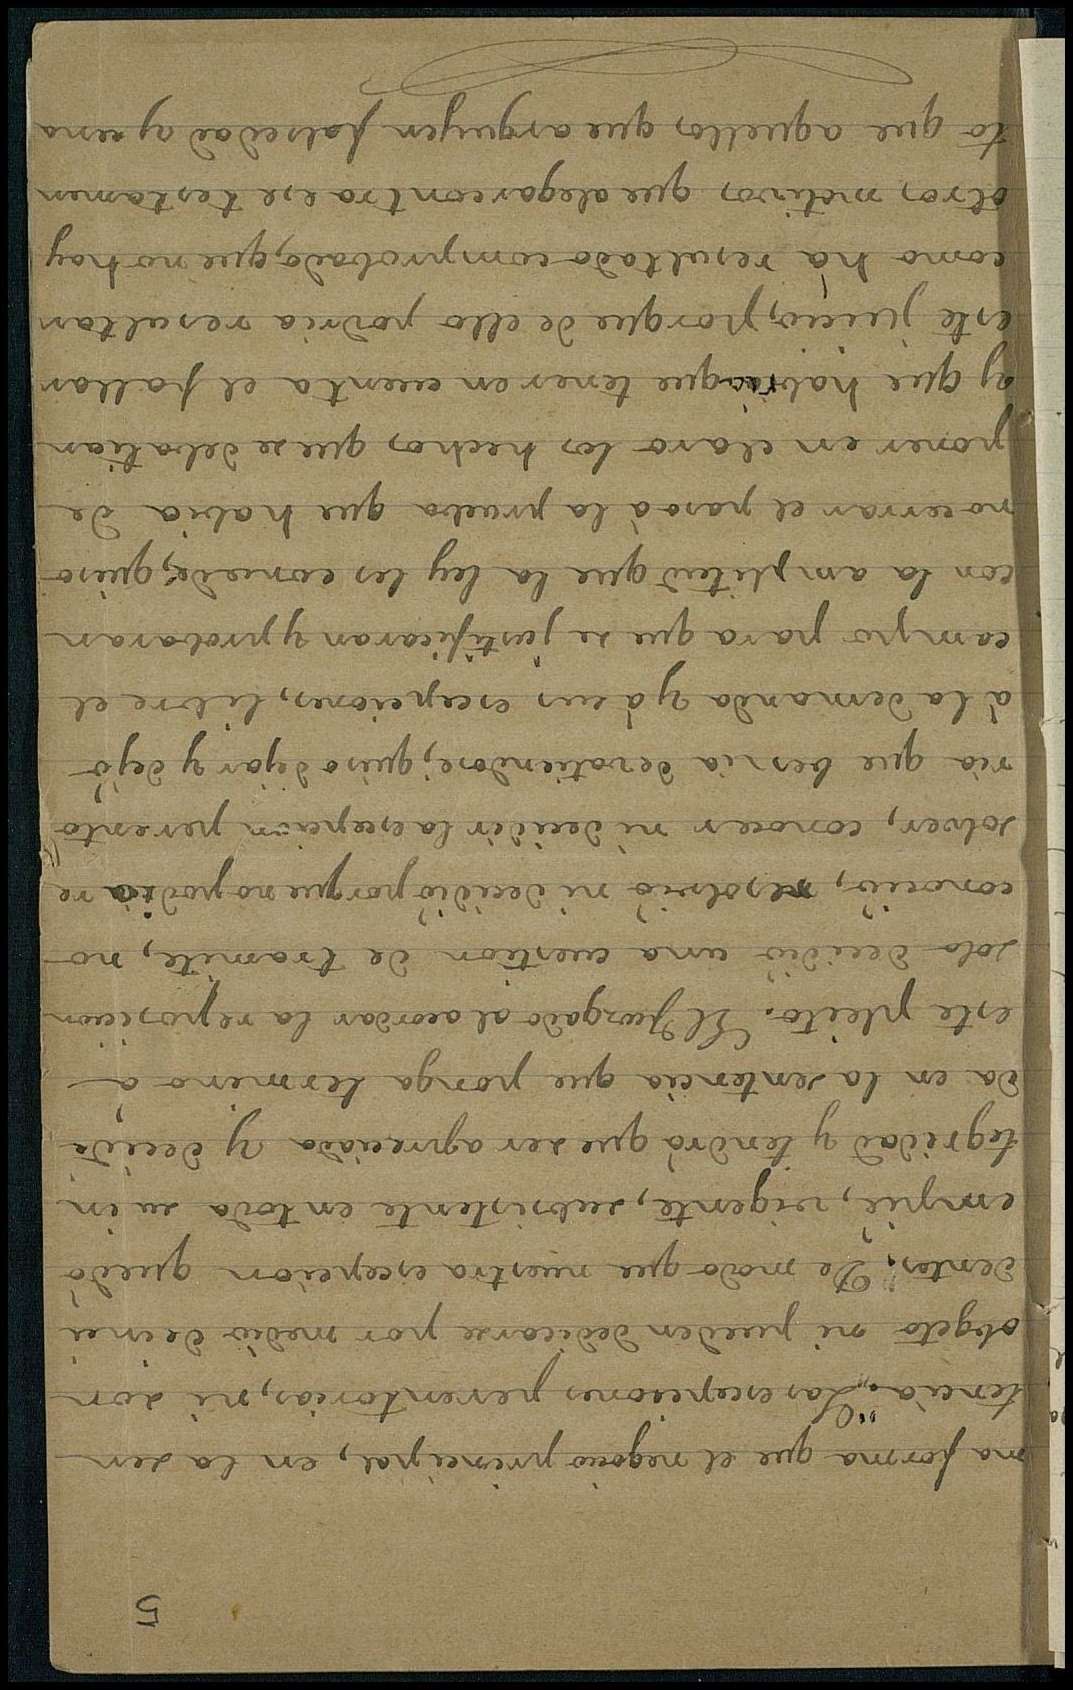 5
ma forma que el negocio principal, en la sen
tencia. "Las escepciones perentorias, ni son
objeto ni pueden dedicarse por medio de inci
dentes". De modo que nuestra escepcion quedó
en pié, vigente, subsistente en toda su in
tegridad y tendrá que ser apreciada y decidi
da en la sentencia que ponga termino á
este pleito. El Juzgado al acordar la reposicion
solo decidió una cuestion de tramite, no
conoció, resolvió ni decidió porque no podia re
solver, conocer ni decidir la escepcion perento
ria que venia devatiendose; quiso dejar y dejó
á la demanda y á sus escepciones, libre el
campo para que se justificaran y probaran
con la amplitud que la ley les concede; quiso
no cerrar el paso á la prueba que habia de
poner en claro los hechos que se debatian
y que habria que tener en cuenta el fallar
este juicio, porque de ello podria resultar
como há resultado comprobado, que no hay
otros motivos que alegar contra ese testamen
to que aquellos que arguyen falsedad y una